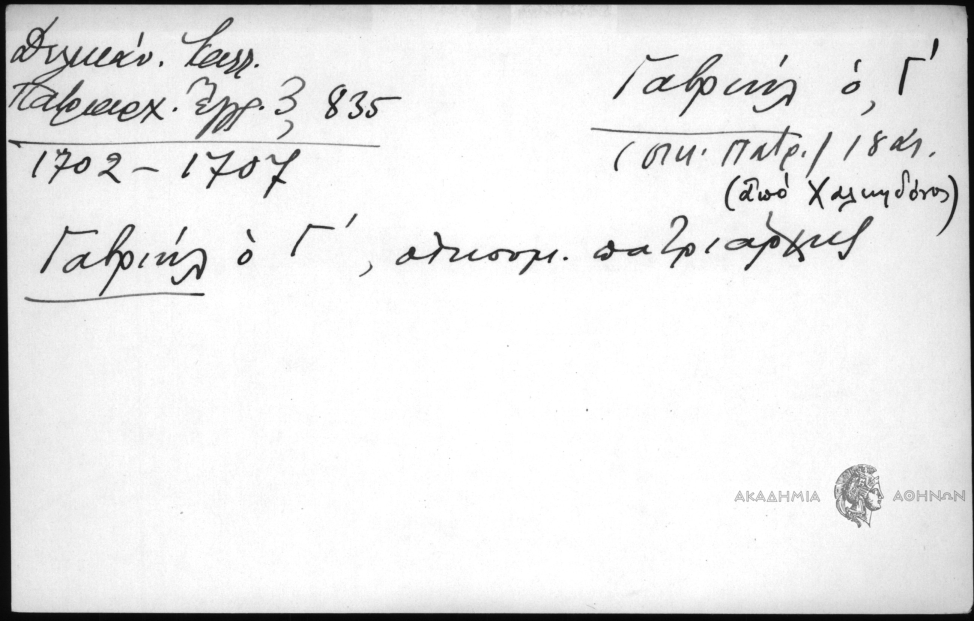 Δελικάν. Καλλ.
Πατριαρχ. Ἔγγρ. 3, 835
1702 – 1707
Γαβριήλ ὁ Γ΄
(οικ. Πατρ.) 18 αι.
(ἀπό Χαλκηδόνος)
Γαβριήλ ὁ Γ΄, οἰκουμ. πατριάρχης
ΑΚΑΔΗΜΙΑ ΑΘΗΝΩΝ